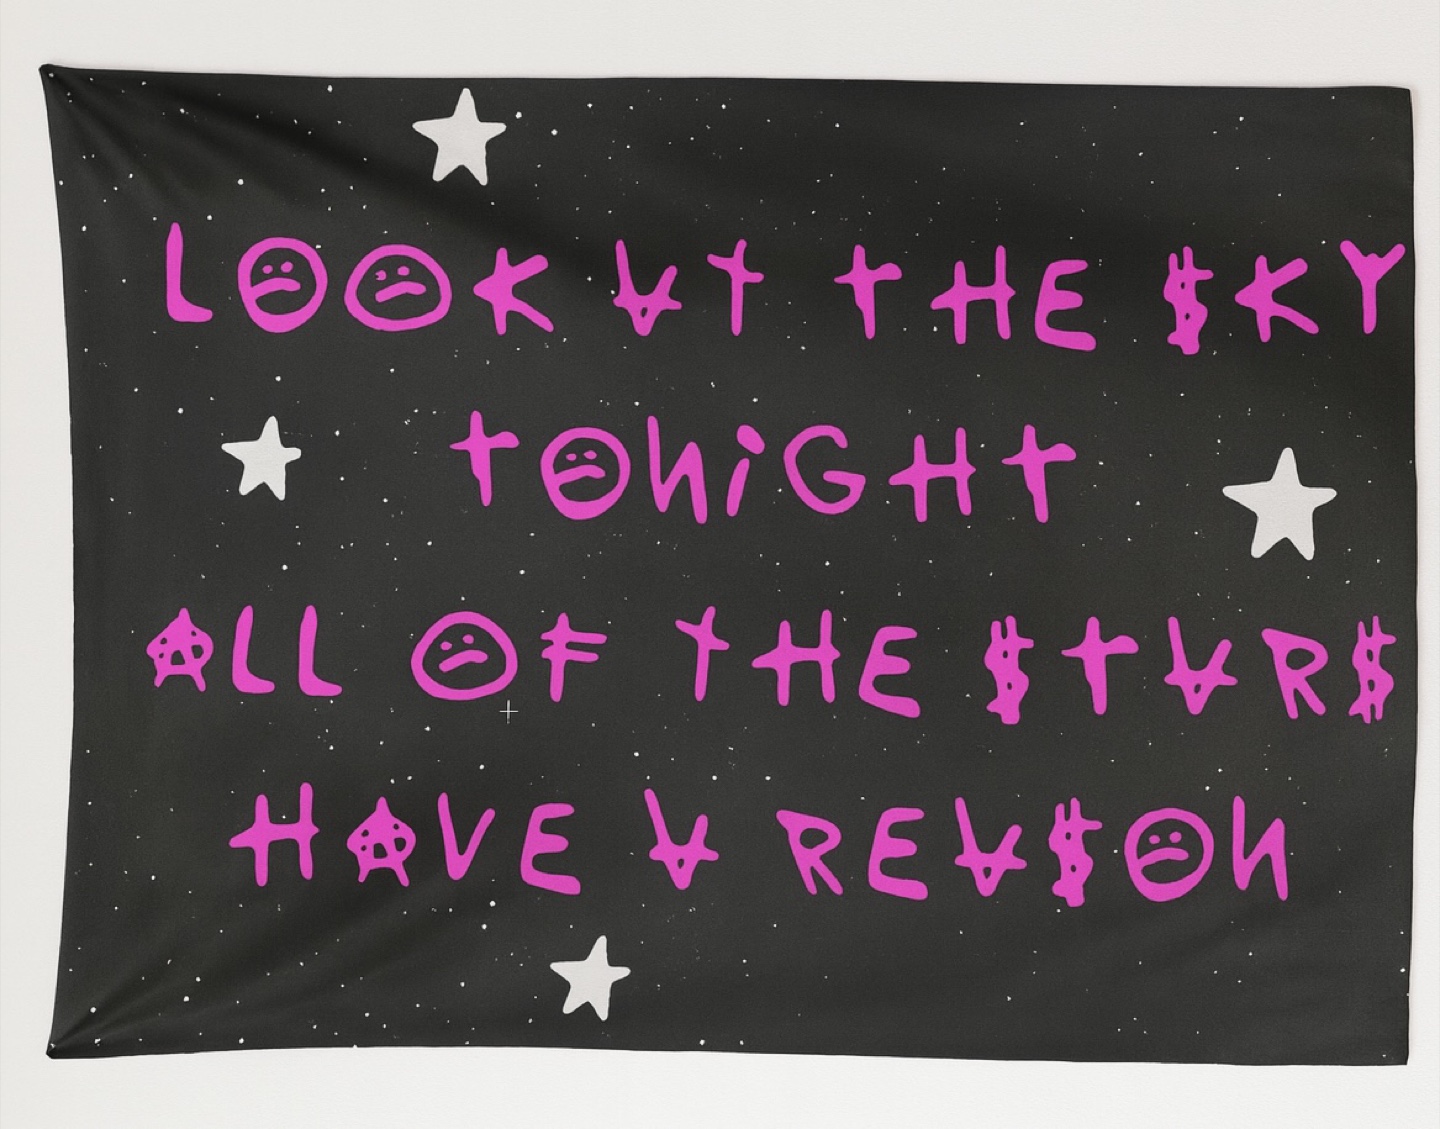 LOOK AT THE $KY
TONiGHT
ALL OF THE $TAR$
HAVE A REA$ON